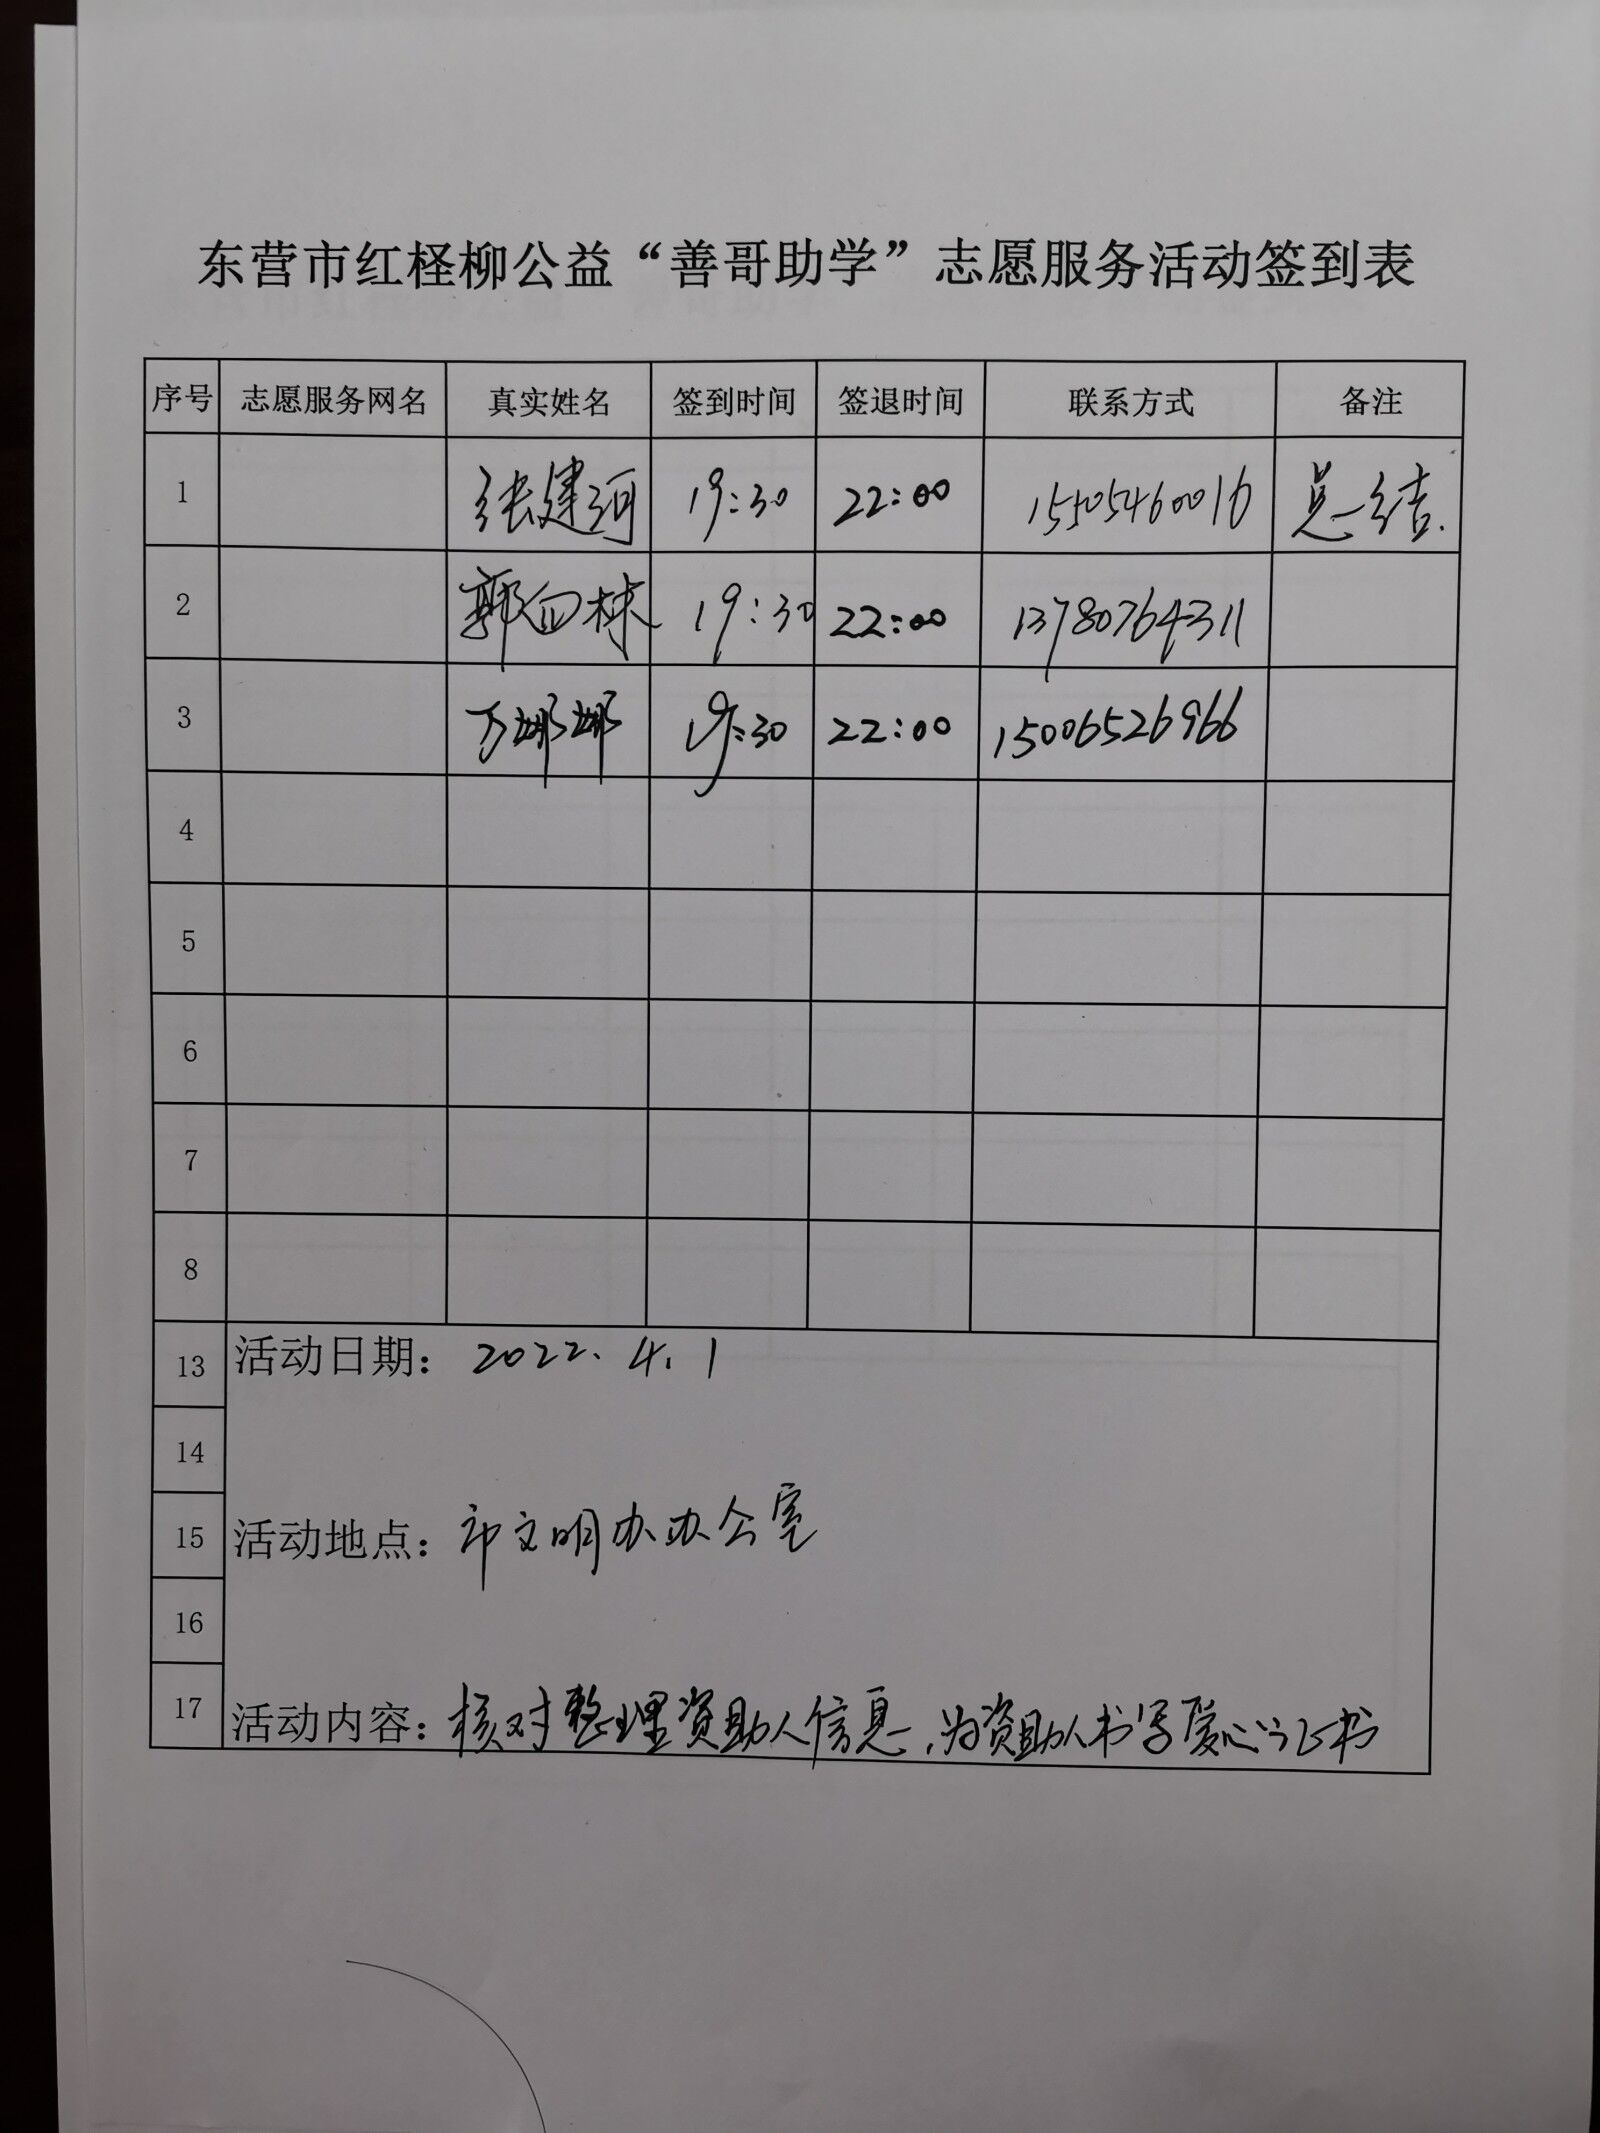 东营市红柽柳公益“善哥助学”志愿服务活动签到表
序号 志愿服务网名 真实姓名 签到时间 签退时间 联系方式 备注
1 张建河 19:30 22:00 15505460016 总结.
2 郭向林 19:30 22:00 13780764311
3 万娜娜 19:30 22:00 15006526966
4
5
6
7
8
13 活动日期: 2022.4.1
14
15 活动地点: 市文明办办公室
16
17 活动内容: 核对整理资助人信息,为资助人书写爱心证书